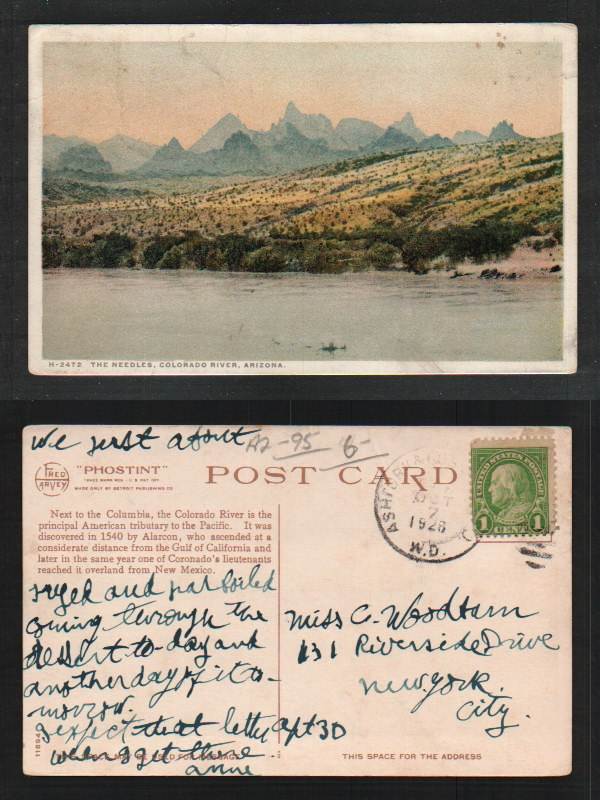 H-2472 THE NEEDLES, COLORADO RIVER, ARIZONA.
we just about
AZ-95 6-
FRED HARVEY
"PHOSTINT"
TRADE MARK REG. U.S. PAT. OFF.
MADE ONLY BY DETROIT PUBLISHING CO.
POST CARD
ASH
OCT
7
1926
W.D.
UNITED STATES POSTAGE
1 CENT 1
Next to the Columbia, the Colorado River is the
principal American tributary to the Pacific. It was
discovered in 1540 by Alarcon, who ascended at a
considerate distance from the Gulf of California and
later in the same year one of Coronado's lieutenants
reached it overland from New Mexico.
and parboiled
coming through the
dessert to-day and
another day of it to-
morrow.
expect that letter
when I get there
Anne
Miss C.
131 Riverside Drive
New York
City.
apt 30
THIS SPACE MAY BE USED FOR MESSAGE
THIS SPACE FOR THE ADDRESS